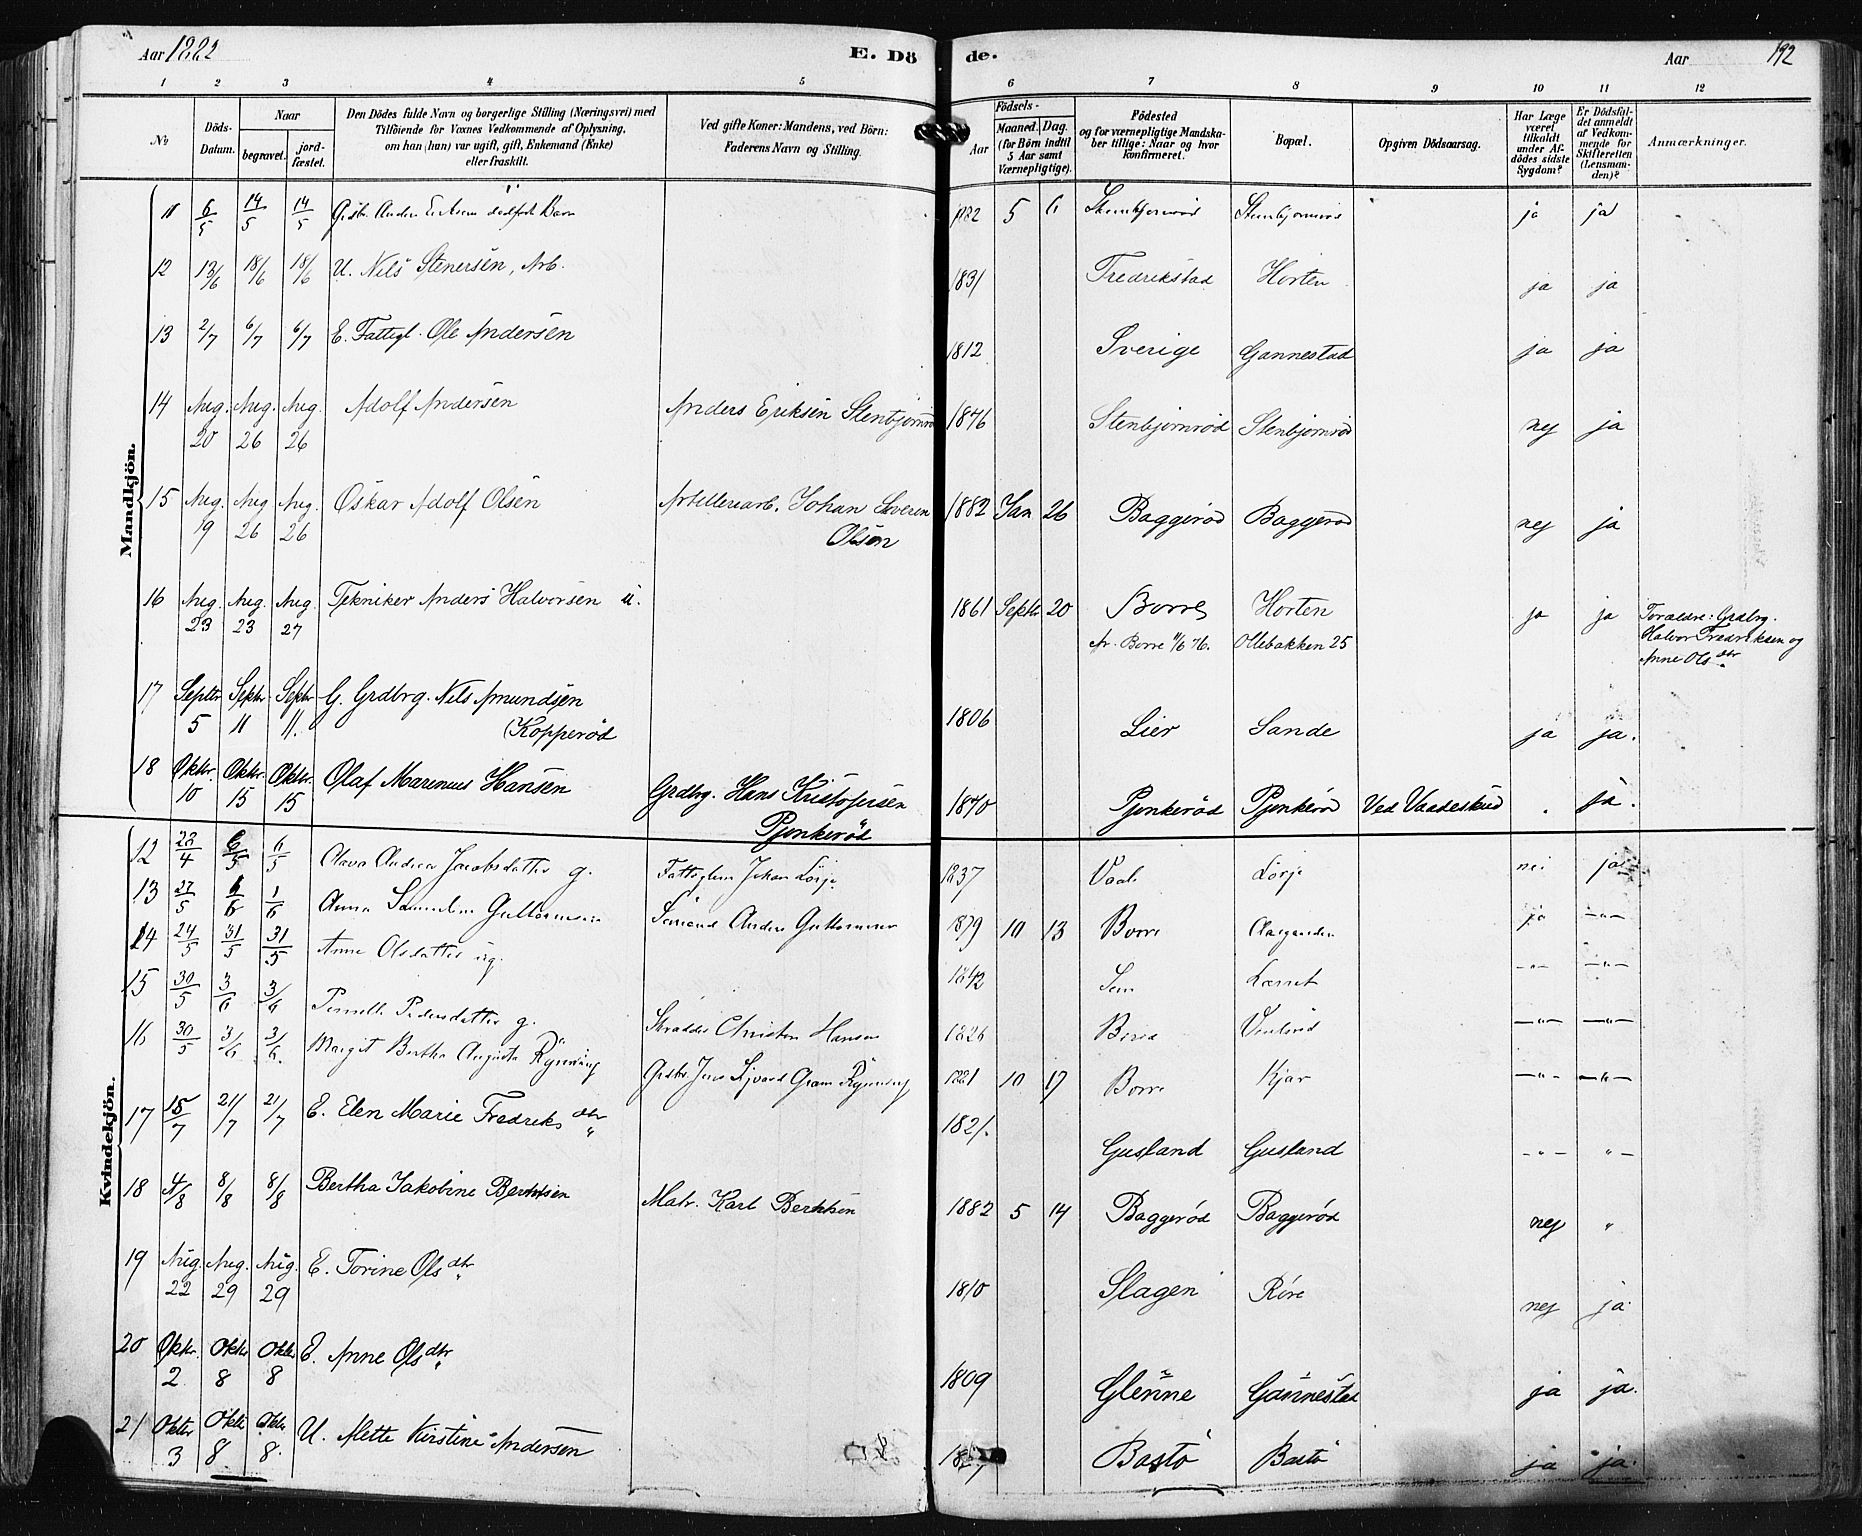 Aar 1882 E. Dö de. Aar 192
1 2 3 4 5 6 7 8 9 10 11 12
No Döds-Datum. Naar begravet. jord-fæstet. Den Dödes fulde Navn og borgerlige Stilling (Næringsvei) med Tilföiende for Voxnes Vedkommende af Oplysning, om han (hun) var ugift, gift, Enkemand (Enke) eller fraskilt. Ved gifte Koner: Mandens, ved Börn: Faderens Navn og Stilling. Födsels- Aar Maaned. Dag. (for Börn indtil 5 Aar samt Værnepligtige). Födested og for værnepligtige Mandskaber tillige: Naar og hvor konfirmeret. Bopæl. Opgiven Dödsaarsag. Har Læge været tilkaldt under Afdödes sidste Sygdom? Er Dödsfaldet anmeldt af Vedkommende for Skifteretten (Lensmanden)? Anmærkninger.
Mandkjön.
11 6/5 14/5 14/5 Grdbr. Anders Eriksens dødfødt Barn 1882 5 6 Stenbjørnrød Stenbjørnrød ja ja
12 13/6 18/6 18/6 U. Nils Stenersen, Arb. 1831 Fredrikstad Horten ja ja
13 2/7 6/7 6/7 E. Fattigl. Ole Andersen 1812 Sverige Gannestad ja ja
14 Aug. 20 Aug. 26 Aug. 26 Adolf Andersen Anders Eriksen Stenbjørnrød 1876 Stenbjørnrød Stenbjørnrød nej ja
15 Aug. 19 Aug 26 Aug. 26 Oskar Adolf Olsen Artilleriearb. Johan Severin Olsen 1882 Jan 26 Baggerød Baggerød nej ja
16 Aug. 23 Aug. 23 Aug. 27 Tekniker Anders Halvorsen u. 1861 Septr 20 Borre Horten ja ja Foraldre: Grdbrg.
Kr. Borre 11/6 76. Ollebakken 25 Halvor Fredriksen og
Anne Olsdtr
17 Septbr 5 Septbr 11 Septbr 11. G. Grdbrg. Nils Amundsen (Kopperød 1806 Lier Sande ja ja.
18 Oktbr. 10 Oktbr. 15 Oktbr. 15 Olaf Marenius Hansen Grdbrg. Hans Kristofersen Pjonkerød 1870 Pjonkerød Pjonkerød Ved Vaadeskud . ja.
Kvindekjön.
12 28/4 6/5 6/5 Olava Andrea Jacobsdatter g. Fattiglem Johan Lørje 1837 Vaale Lørje nei ja
13 27/5 1/6 1/6 Anna Guttormsen Sømand Anders Guttormsen 1879 10 13 Borre ja —"—
14 24/5 31/5 31/5 Anne Olsdatter ug. 1842 Sem —"— —"—
15 30/5 3/6 3/6 Pernille Pedersdatter g. Skrædder Christen Hansen 1826 Borre —"— —"—
16 30/5 3/6 3/6. Margit Bertha Augusta Rynning Grdbr Jens Gram Rynning 1881 10 17 Borre Kjær —"— —"—
17 15/7 21/7 21/7 E. Elen Marie Fredriksdtr 1821. Gusland Gusland —"— "—
18 4/8 8/8 8/8 Bertha Jakobine Berntsen Matr. Karl Berntsen 1882 5 14 Baggerød Baggerød nej "
19 Aug. 22 Aug. 29 Aug. 29 E. Torine Olsdtr 1810 Slagen Røre nej ja.
20 Oktbr. 2 Oktbr 8 Oktbr 8 E. Anne Olsdtr 1809 Glenne Gannestad ja ja.
21 Oktbr 3 Oktbr 8 Oktbr 8. U. Mette Kirstine Andersen Bastø Bastø ja ja.